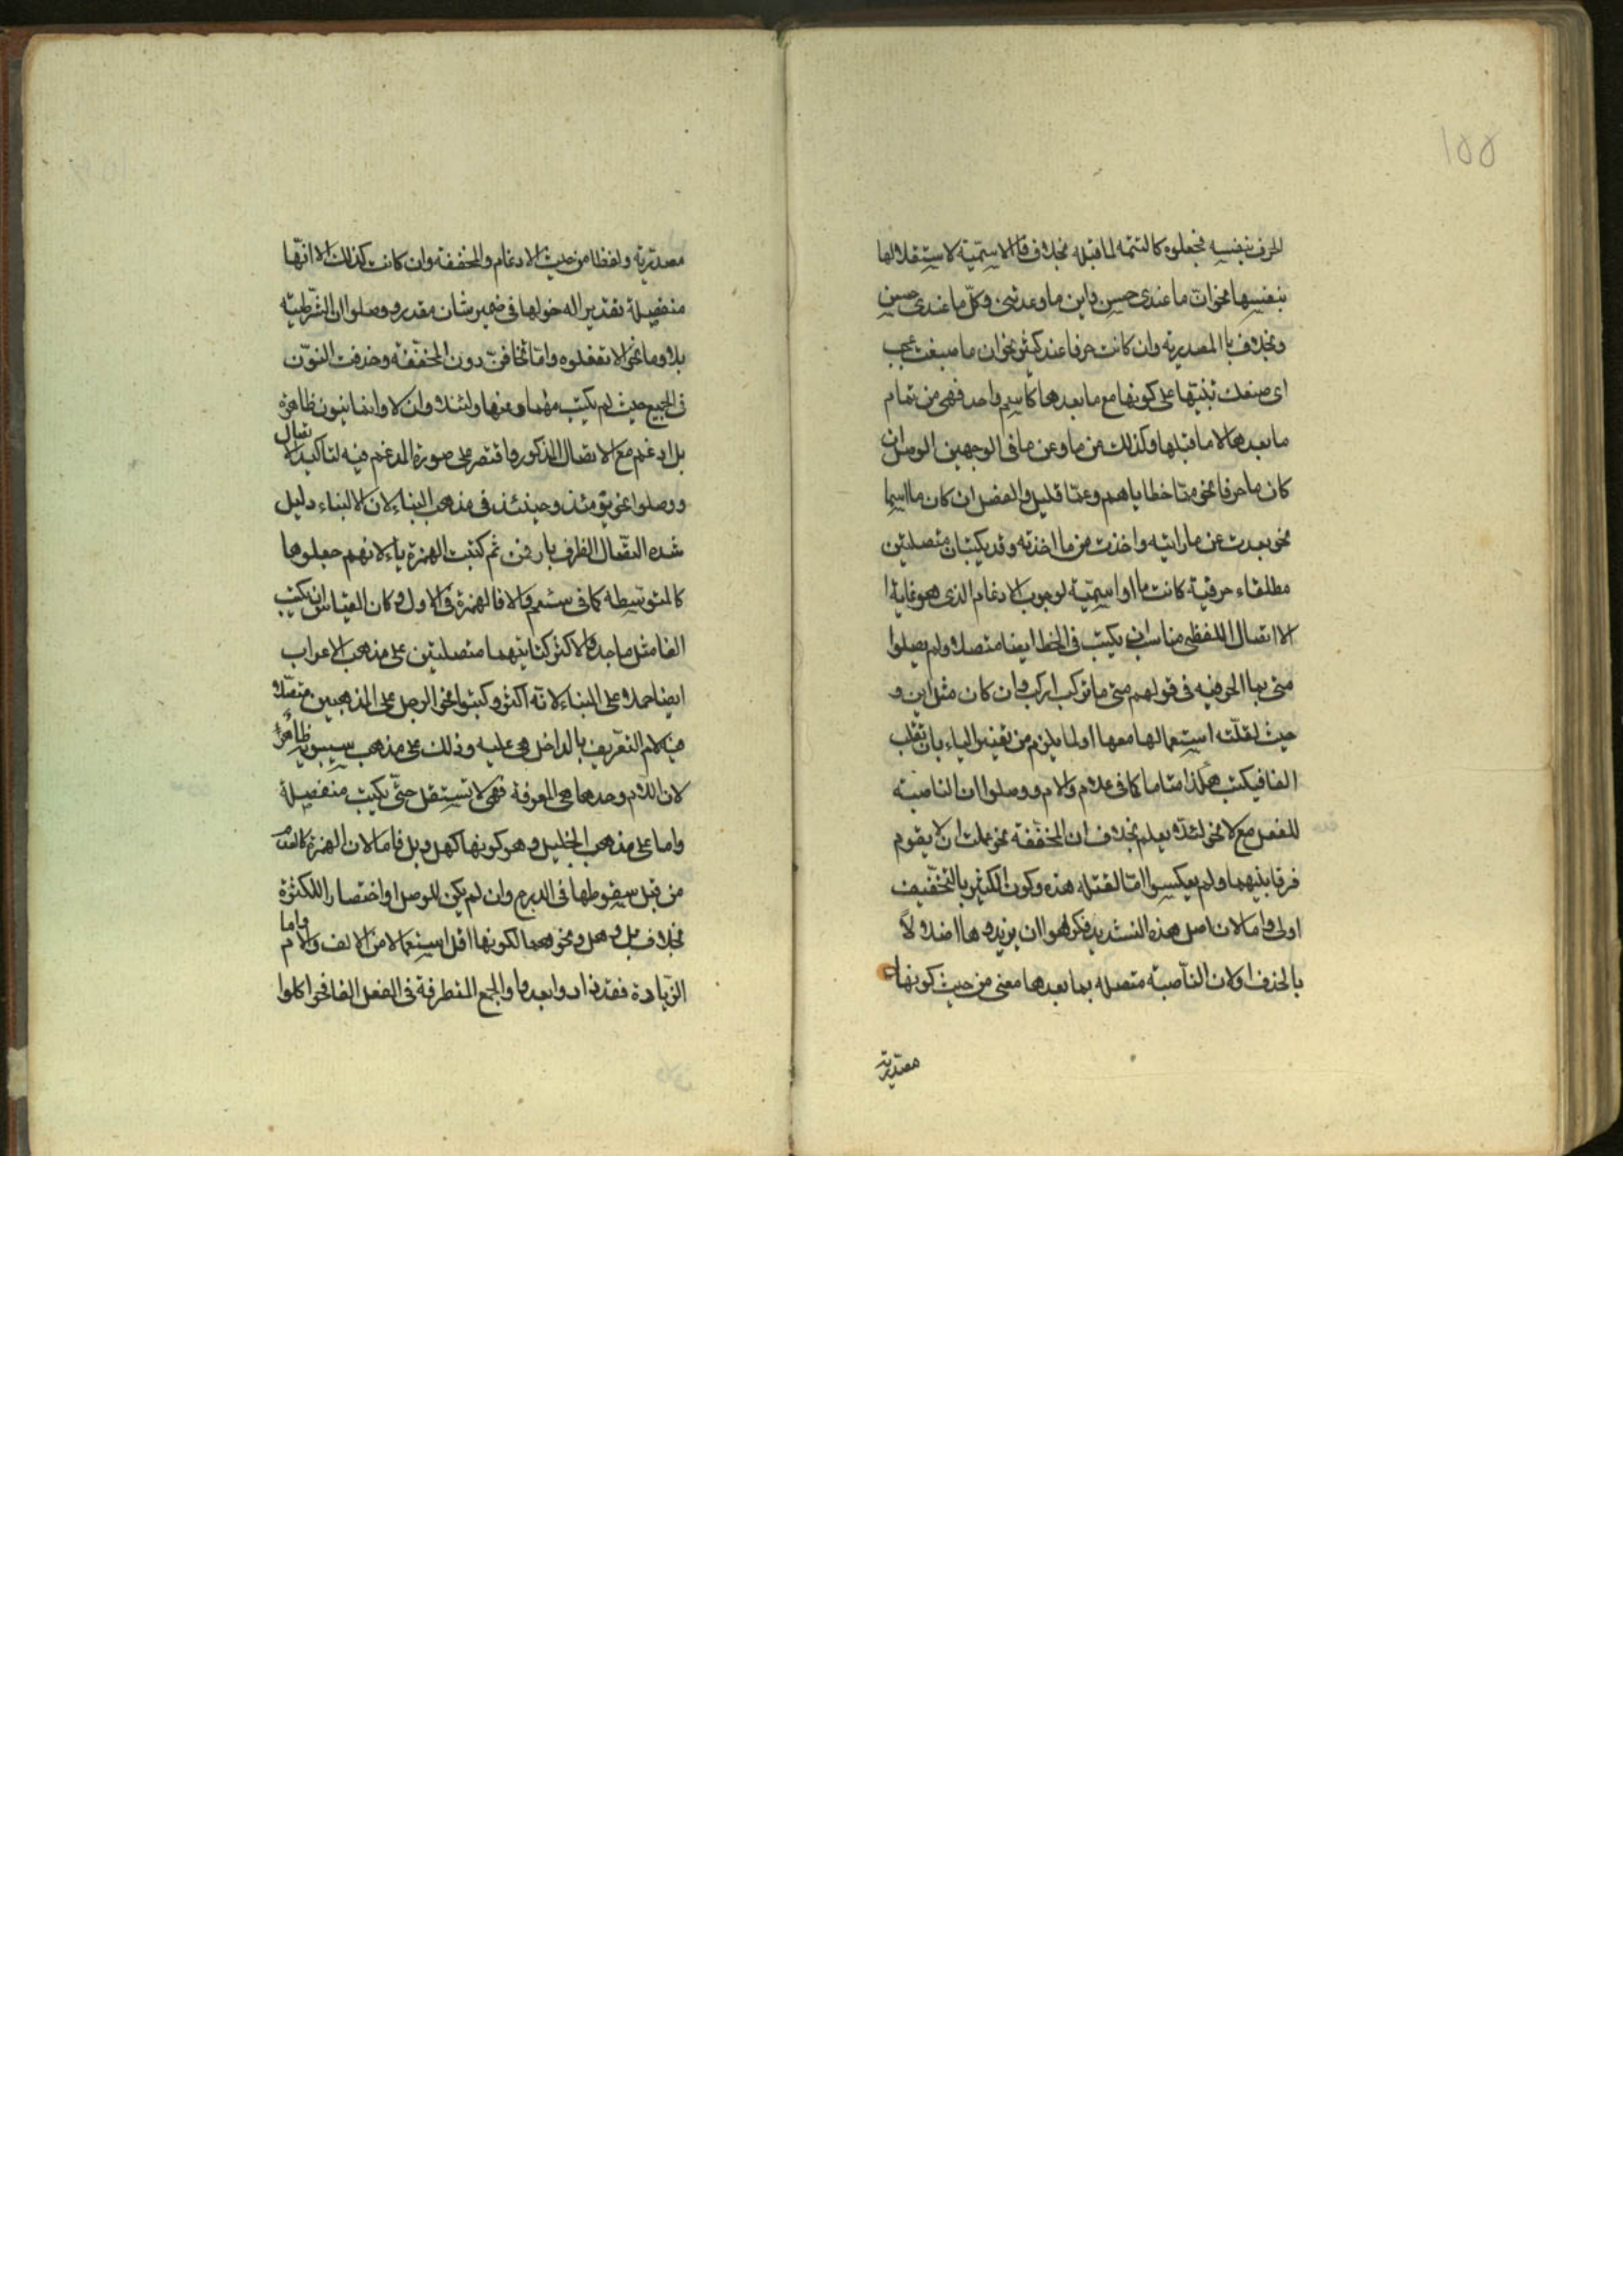 ١٥٥
الحرف بنفسه فجعلوه كالتتمة لما قبله بخلاف ما الاسمية لاستقلالها
بنفسها نحو ان ما عندى حسن واين ما وعدتنى وكل ما عندى حسن
وبخلاف ما المصدرية وان كانت حرفا عند كثير نحو ان ما صنعت عجب
اى صنعك تنبيها على كونها مع ما بعدها كاسم واحد فهى من تمام
ما بعدها لا ما قبلها وكذلك من ما وعن ما فى الوجهين الوصل ان
كان ما حرفا نحو مما خطاياهم وعما قليل والفصل ان كان ما اسما
نحو بعدت عن ما رايته واخذت من ما اخذته وقد يكتبان متصلتين
مطلقاء حرفية كانت ما او اسمية لوجوب الادغام الذى هو غاية ا
الاتصال اللفظى مناسب ان يكتب فى الخط ايضا متصلا ولم يصلوا
متى بما الحرفية فى قولهم متى ما تركب اركب وان كان مثل اين و
حيث لقلة استعمالها معها او لما يلزم من تغيير الياء بان تقلب
الفا فيكتب هكذا متاما كما فى علام والام ووصلوا ان الناصبة
للفعل مع لا نحو لئلا يعلم بخلاف ان المخففة نحو علمت ان لا يقوم
فرقا بينهما ولم يعكسوا اما لقلة هذه وكون الكثير بالتخفيف
اولى واما لان اصل هذه التشديد فكرهوا ان يزيدوها اخلالاً
بالحذف او لان الناصبة متصلة بما بعدها معنى من حيث كونها
مصدرية
مصدرية ولفظا من حيث الادغام والمخففة وان كانت كذلك الا انها
منفصلة تقديرا لدخولها فى ضمير شان مقدر ووصلوا ان الشرطية
بلا وما نحو الا تفعلوه واما تخافن دون المخففة وحذفت النون
فى الجميع حيث لم يكتب ولئلا وان لا وانما بنون ظاهرة
بل ادغم مع الاتصال المذكور واقتصر على صورة المدغم فيه لتاكيد الاتصال
ووصلوا نحو يومئذ وحينئذ فى مذهب البناء لان البناء دليل
شدة اتصال الظرف باذ فمن ثم كتبت الهمزة ياء لانهم جعلوها
كالمتوسطه كما فى سئم والا فالهمزة فى الاول وكان القياس ان يكتب
الفا مثل باحد والاكثر كتابتهما متصلتين على مذهب الاعراب
ايضا حملا على البناء لانه اكثر وكتبوا نحو الرجل على المذهبين متصلا
فيه لام التعريف بالداخل هى عليه وذلك على مذهب سيبويه ظاهر
لان اللام وحدها هى المعرفة فهى لا تستقل حتى يكتب منفصلة
واما على مذهب الخليل وهو كونها كهل وبل فاما لان الهمزة كالعدم
من قبل سقوطها فى الدرج وان لم يكن للوصل او اختصارا للكثرة
بخلاف بل وهل ونحوهما لكونها اقل استعمالا من الالف والام واما
الزيادة فقد زادوا بعد واو الجمع المتطرفة فى الفعل الفا نحو اكلوا